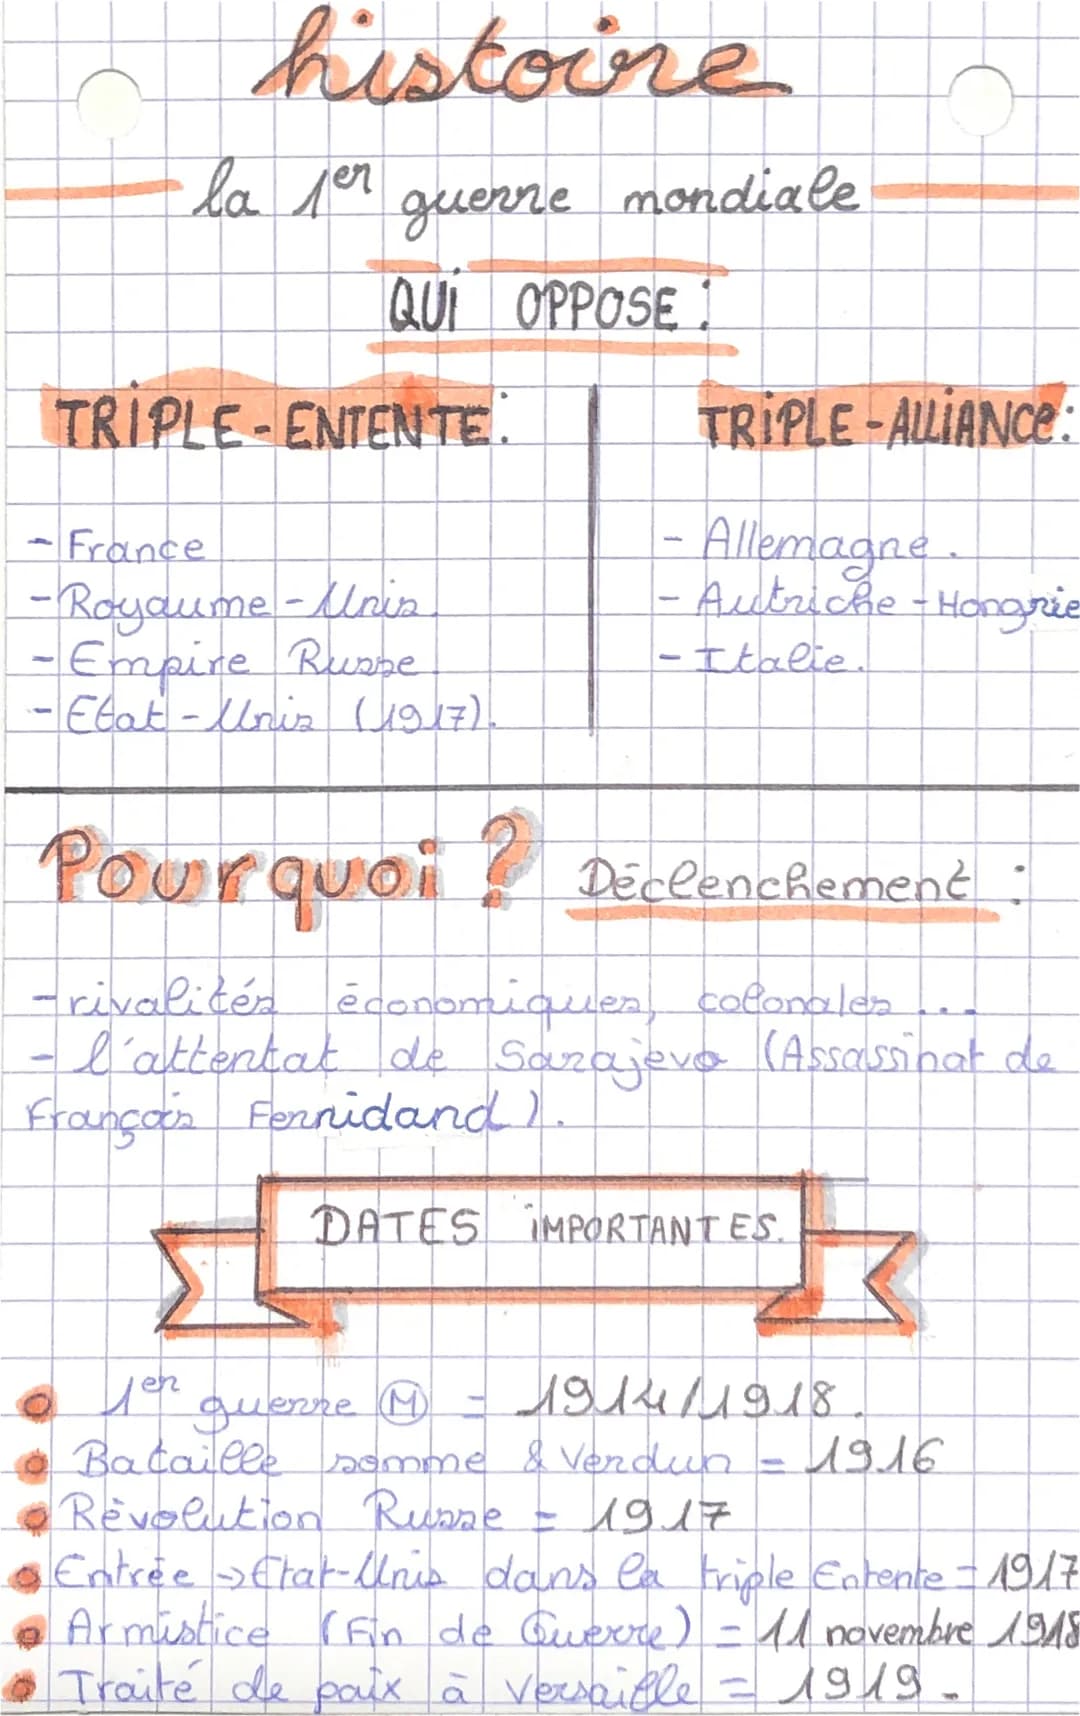 histoire
la 1er guerre mondiale
QUi OPPOSE :
TRiPLE-ENTENTE :
TRiPLE-ALLiANCE :
- France
- Royaume-Unis.
- Empire Russe
- Etat-Unis (1917).
- Allemagne.
- Autriche-Hongrie
- Italie.
Pourquoi ? Déclenchement :
- rivalités économiques, colonales ...
- l'attentat de Sarajevo (Assassinat de
François Fernidand).
DATES iMPORTANTES.
1er guerre M = 1914/1918.
Bataille somme & Verdun = 1916
Révolution Russe = 1917
Entrée → Etat-Unis dans la triple Entente = 1917
Armistice (Fin de Guerre) = 11 novembre 1918
Traité de paix à Versaille = 1919.